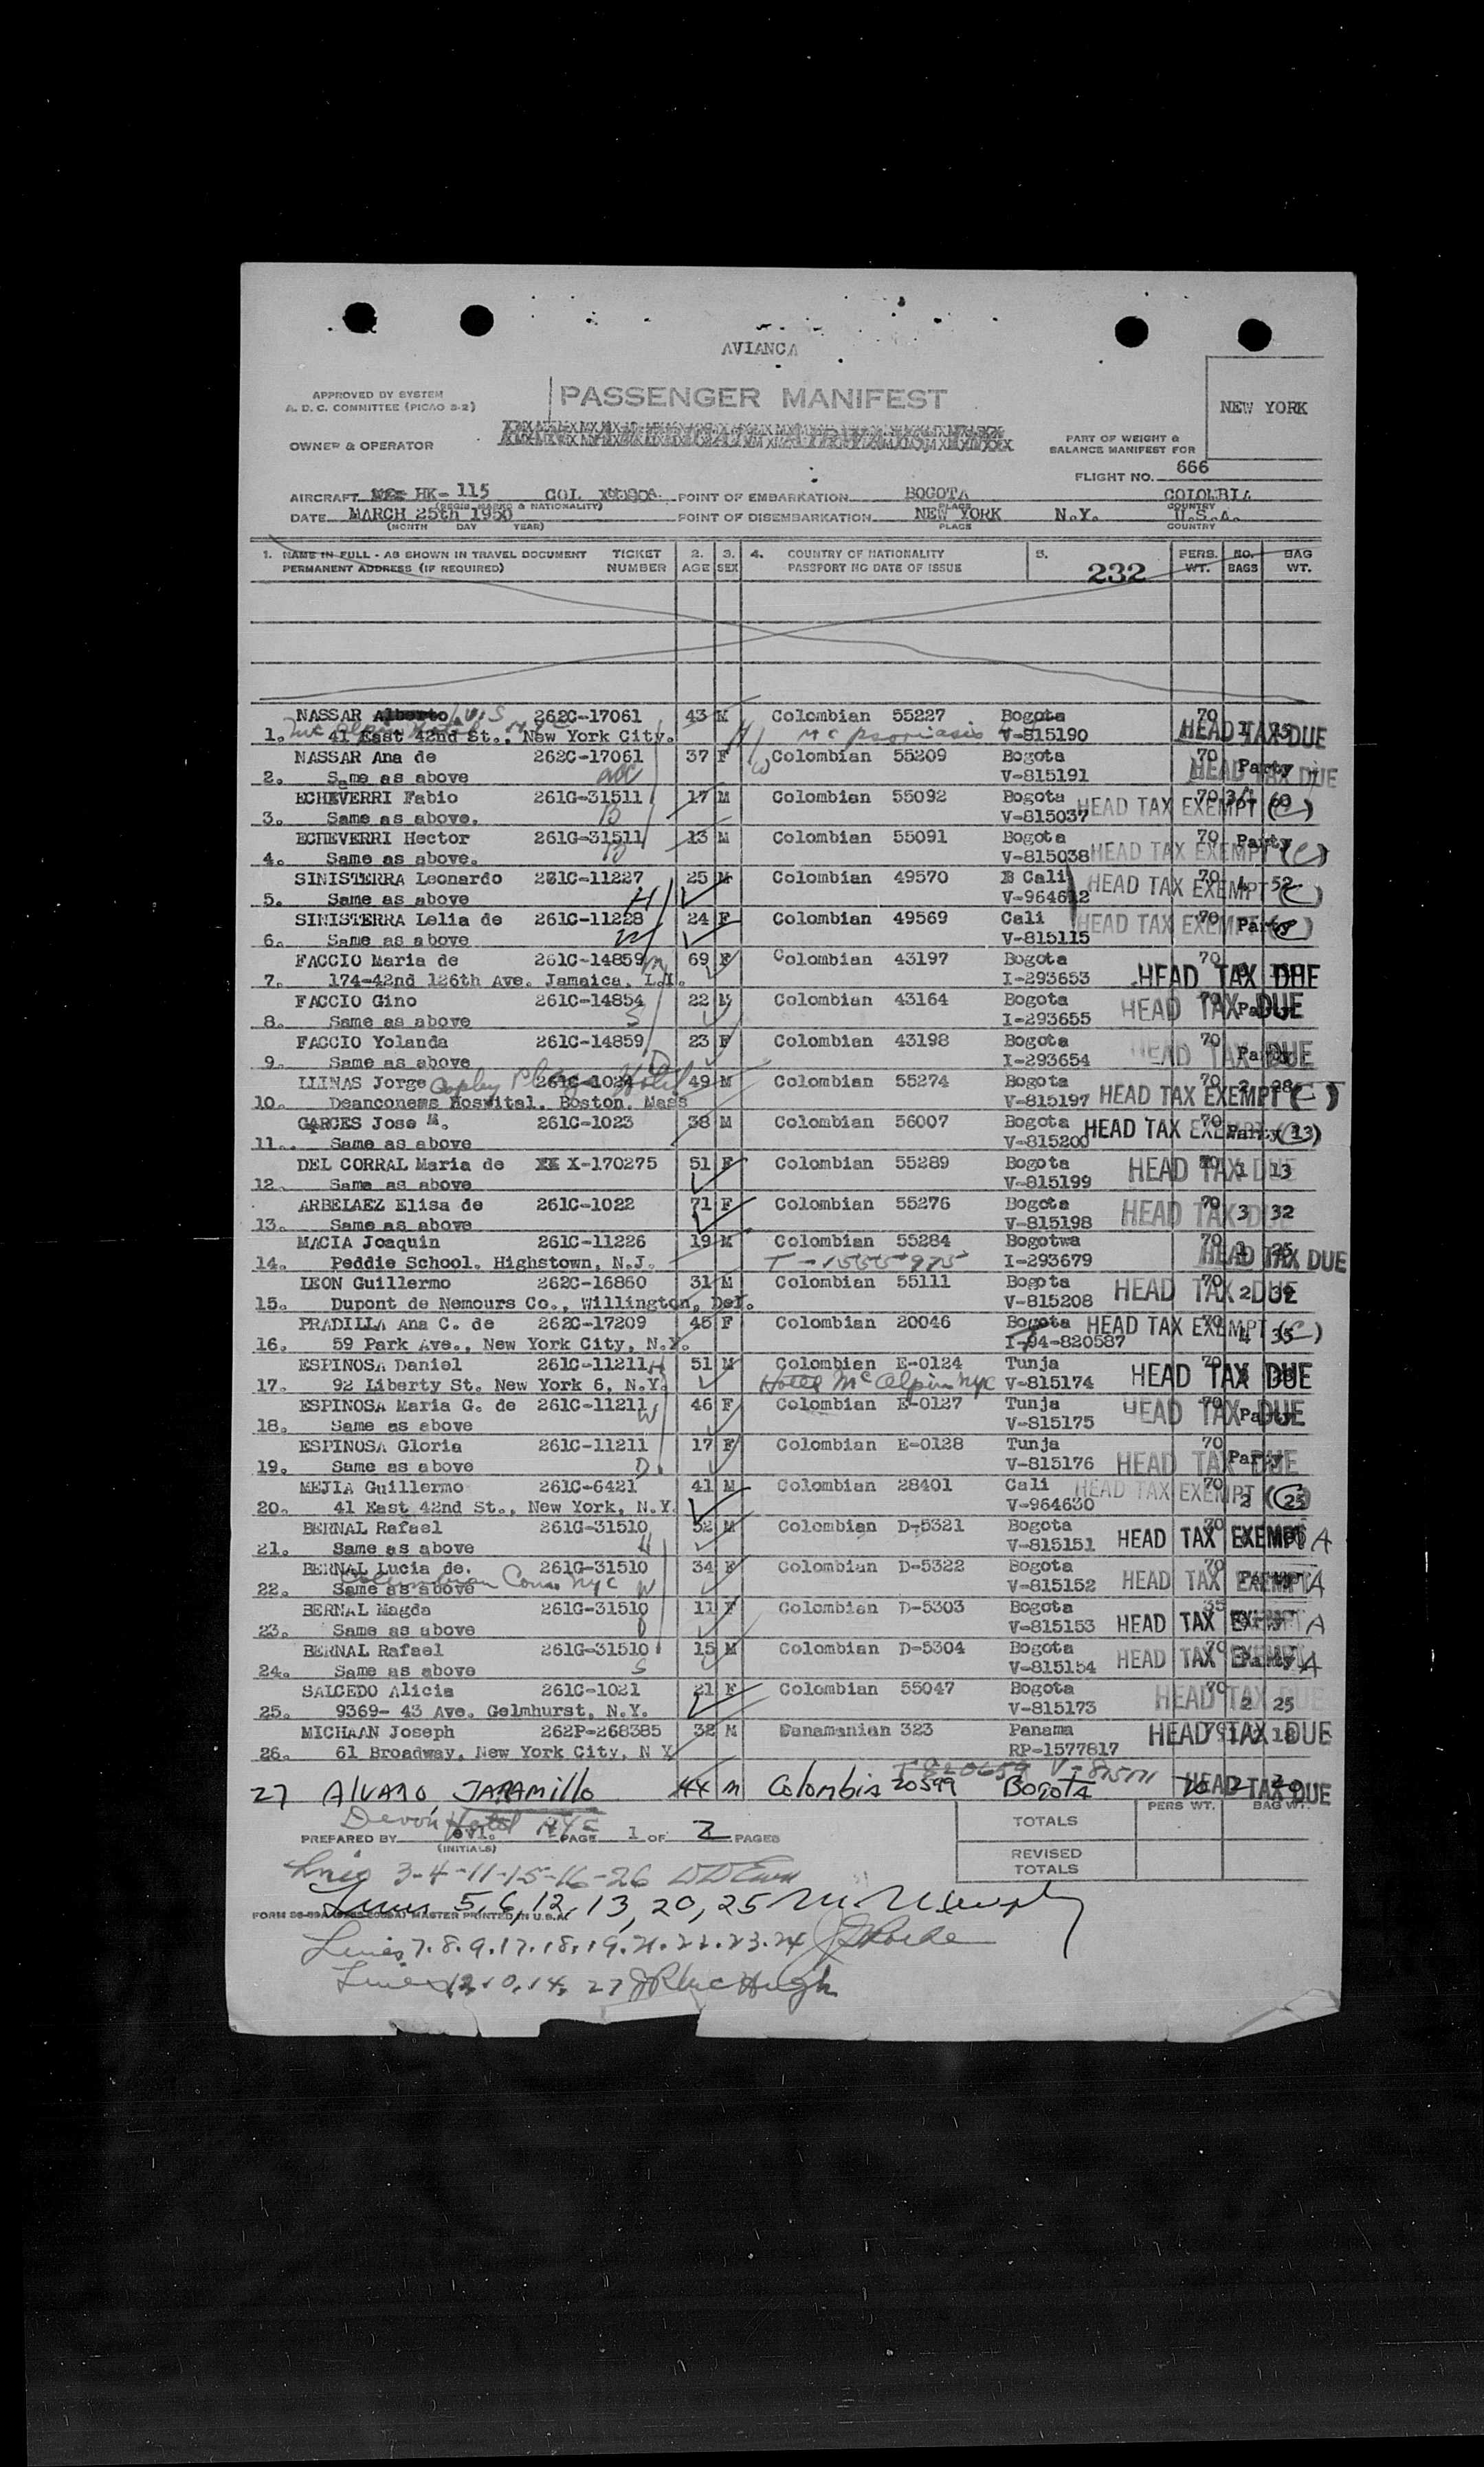 AVIANCA
APPROVED BY SYSTEM
A. D. C. COMMITTEE (PICAO S-2)
PASSENGER MANIFEST
NEW YORK
OWNER & OPERATOR
PART OF WEIGHT &
BALANCE MANIFEST FOR
FLIGHT NO. 666
AIRCRAFT HK- 115 COL POINT OF EMBARKATION BOGOTA COLOMBIA
(REGIS. MARKS & NATIONALITY) PLACE COUNTRY
DATE MARCH 25th 1950 POINT OF DISEMBARKATION NEW YORK N.Y. U.S.A.
(MONTH DAY YEAR) PLACE COUNTRY
1. NAME IN FULL - AS SHOWN IN TRAVEL DOCUMENT TICKET 2. 3. 4. COUNTRY OF NATIONALITY 5. PERS. NO. BAG
PERMANENT ADDRESS (IF REQUIRED) NUMBER AGE SEX PASSPORT NO DATE OF ISSUE 232 WT. BAGS WT.
NASSAR 262C-17061 43 M Colombian 55227 Bogota 70 1
1. 41 East 42nd St., New York City. V-815190 HEAD TAX DUE
NASSAR Ana de 262C-17061 37 F Colombian 55209 Bogota 70 Party
2. Same as above W V-815191 HEAD TAX DUE
ECHEVERRI Fabio 261G-31511 17 M Colombian 55092 Bogota 70 60
3. Same as above. B V-815037 HEAD TAX EXEMPT (C)
ECHEVERRI Hector 261G-31511 13 M Colombian 55091 Bogota 70 Party
4. Same as above. B V-815038 HEAD TAX EXEMPT (C)
SINISTERRA Leonardo 261C-11227 25 M Colombian 49570 Cali 70 4 52
5. Same as above H V-964612 HEAD TAX EXEMPT (C)
SINISTERRA Lelia de 261C-11228 24 F Colombian 49569 Cali 70 Party
6. Same as above W V-815115 HEAD TAX EXEMPT (C)
FACCIO Maria de 261C-14859 69 F Colombian 43197 Bogota 70
7. 174-42nd 126th Ave. Jamaica, L.I. I-293653 HEAD TAX DUE
FACCIO Gino 261C-14854 22 M Colombian 43164 Bogota 70 Party
8. Same as above S I-293655 HEAD TAX DUE
FACCIO Yolanda 261C-14859 23 F Colombian 43198 Bogota 70 Party
9. Same as above D I-293654 HEAD TAX DUE
LLINAS Jorge Copley Plaza Hotel 49 M Colombian 55274 Bogota 70 2 28
10. Deanconems Hospital. Boston. Mass V-815197 HEAD TAX EXEMPT (C)
GARCES Jose M. 261C-1023 38 M Colombian 56007 Bogota 70 Party
11. Same as above V-815200 HEAD TAX EXEMPT
DEL CORRAL Maria de X-170275 51 F Colombian 55289 Bogota 70 1 13
12. Same as above V-815199 HEAD TAX DUE
ARBELAEZ Elisa de 261C-1022 71 F Colombian 55276 Bogota 70 3 32
13. Same as above V-815198 HEAD TAX DUE
MACIA Joaquin 261C-11226 19 M Colombian 55284 Bogotwa 70 1 25
14. Peddie School. Highstown, N.J. I-293679 HEAD TAX DUE
LEON Guillermo 262C-16860 31 M Colombian 55111 Bogota 70 2
15. Dupont de Nemours Co., Willington, Del. V-815208 HEAD TAX DUE
PRADILLA Ana C. de 262C-17209 45 F Colombian 20046 Bogota 70 4 35
16. 59 Park Ave., New York City, N.Y. I-94-820587 HEAD TAX EXEMPT (C)
ESPINOSA Daniel 261C-11211 H 51 M Colombian E-0124 Tunja 70
17. 92 Liberty St. New York 6, N.Y. Hotel McAlpin NYC V-815174 HEAD TAX DUE
ESPINOSA Maria G. de 261C-11211 46 F Colombian E-0127 Tunja 70 Party
18. Same as above W V-815175 HEAD TAX DUE
ESPINOSA Gloria 261C-11211 17 F Colombian E-0128 Tunja 70 Party
19. Same as above D. V-815176 HEAD TAX DUE
MEJIA Guillermo 261C-6421 41 M Colombian 28401 Cali 70 2 25
20. 41 East 42nd St., New York, N.Y. V-964630 HEAD TAX EXEMPT (C)
BERNAL Rafael 261G-31510 52 M Colombian D-5321 Bogota 70
21. Same as above H V-815151 HEAD TAX EXEMPT A
BERNAL Lucia de. 261G-31510 34 F Colombian D-5322 Bogota 70 Party
22. Same as above W V-815152 HEAD TAX EXEMPT A
BERNAL Magda 261G-31510 11 F Colombian D-5303 Bogota 35
23. Same as above D V-815153 HEAD TAX EXEMPT A
BERNAL Rafael 261G-31510 15 M Colombian D-5304 Bogota 70 Party
24. Same as above S V-815154 HEAD TAX EXEMPT A
SALCEDO Alicia 261C-1021 21 F Colombian 55047 Bogota 70 2 25
25. 9369- 43 Ave. Gelmhurst, N.Y. V-815173 HEAD TAX DUE
MICHAAN Joseph 262P-268385 32 M Panamanian 323 Panama
26. 61 Broadway, New York City, N Y RP-1577817 HEAD TAX DUE
27 Alvaro JARAMillo 44 m Colombia 20599 Bogota 70 2 HEAD TAX DUE
Devon Hotel NYC
PREPARED BY PAGE 1 OF 2 PAGES
(INITIALS)
TOTALS PERS WT. BAG WT.
REVISED
TOTALS
Lines 3-4-11-15-16-26
Lines 5,6,12,13,20,25
MASTER PRINTED IN U.S.A.
Lines 7.8.9.17.18.19.21.22.23.24
Lines 1,2,10,14, 27 McHugh